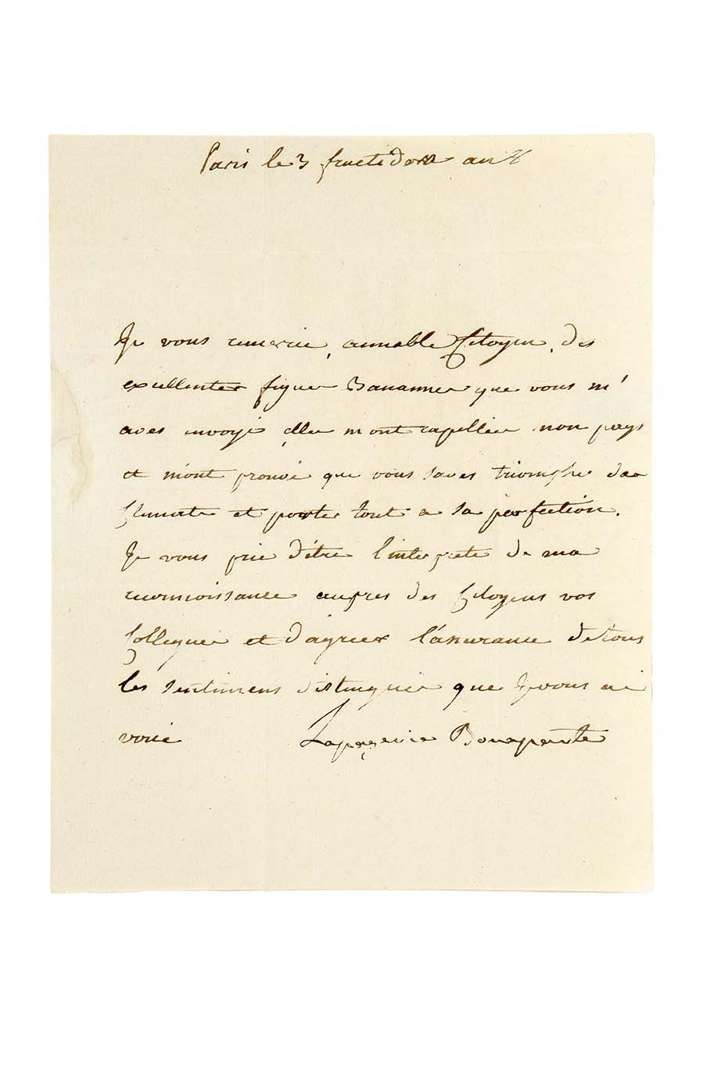 Paris le 3 fructidor an
Je vous remercie, aimable Citoyen, des
excellentes figues Banannes que vous m'
aves envoyé elles mont rapellée mon pays
et mont prouvé que vous saves triomphe des
Climats et porter tout a sa perfection.
Je vous prie d'être l'interprete de ma
reconnoissance aupres des Citoyens vos
Collegues et d'agréer l'assurance de tous
les sentimens distingués que je vous ai
voué Lapagerie Bonaparte